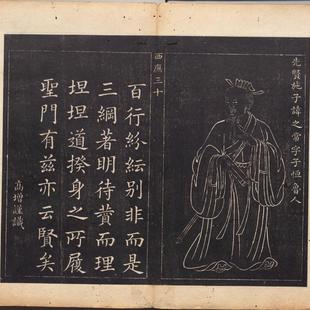 先賢施子諱之常字子恒魯人
西廡三十
百行紛紜別非而是
三綱著明待賛而理
坦坦道揆身之所履
聖門有茲亦云賢矣
高增謹識